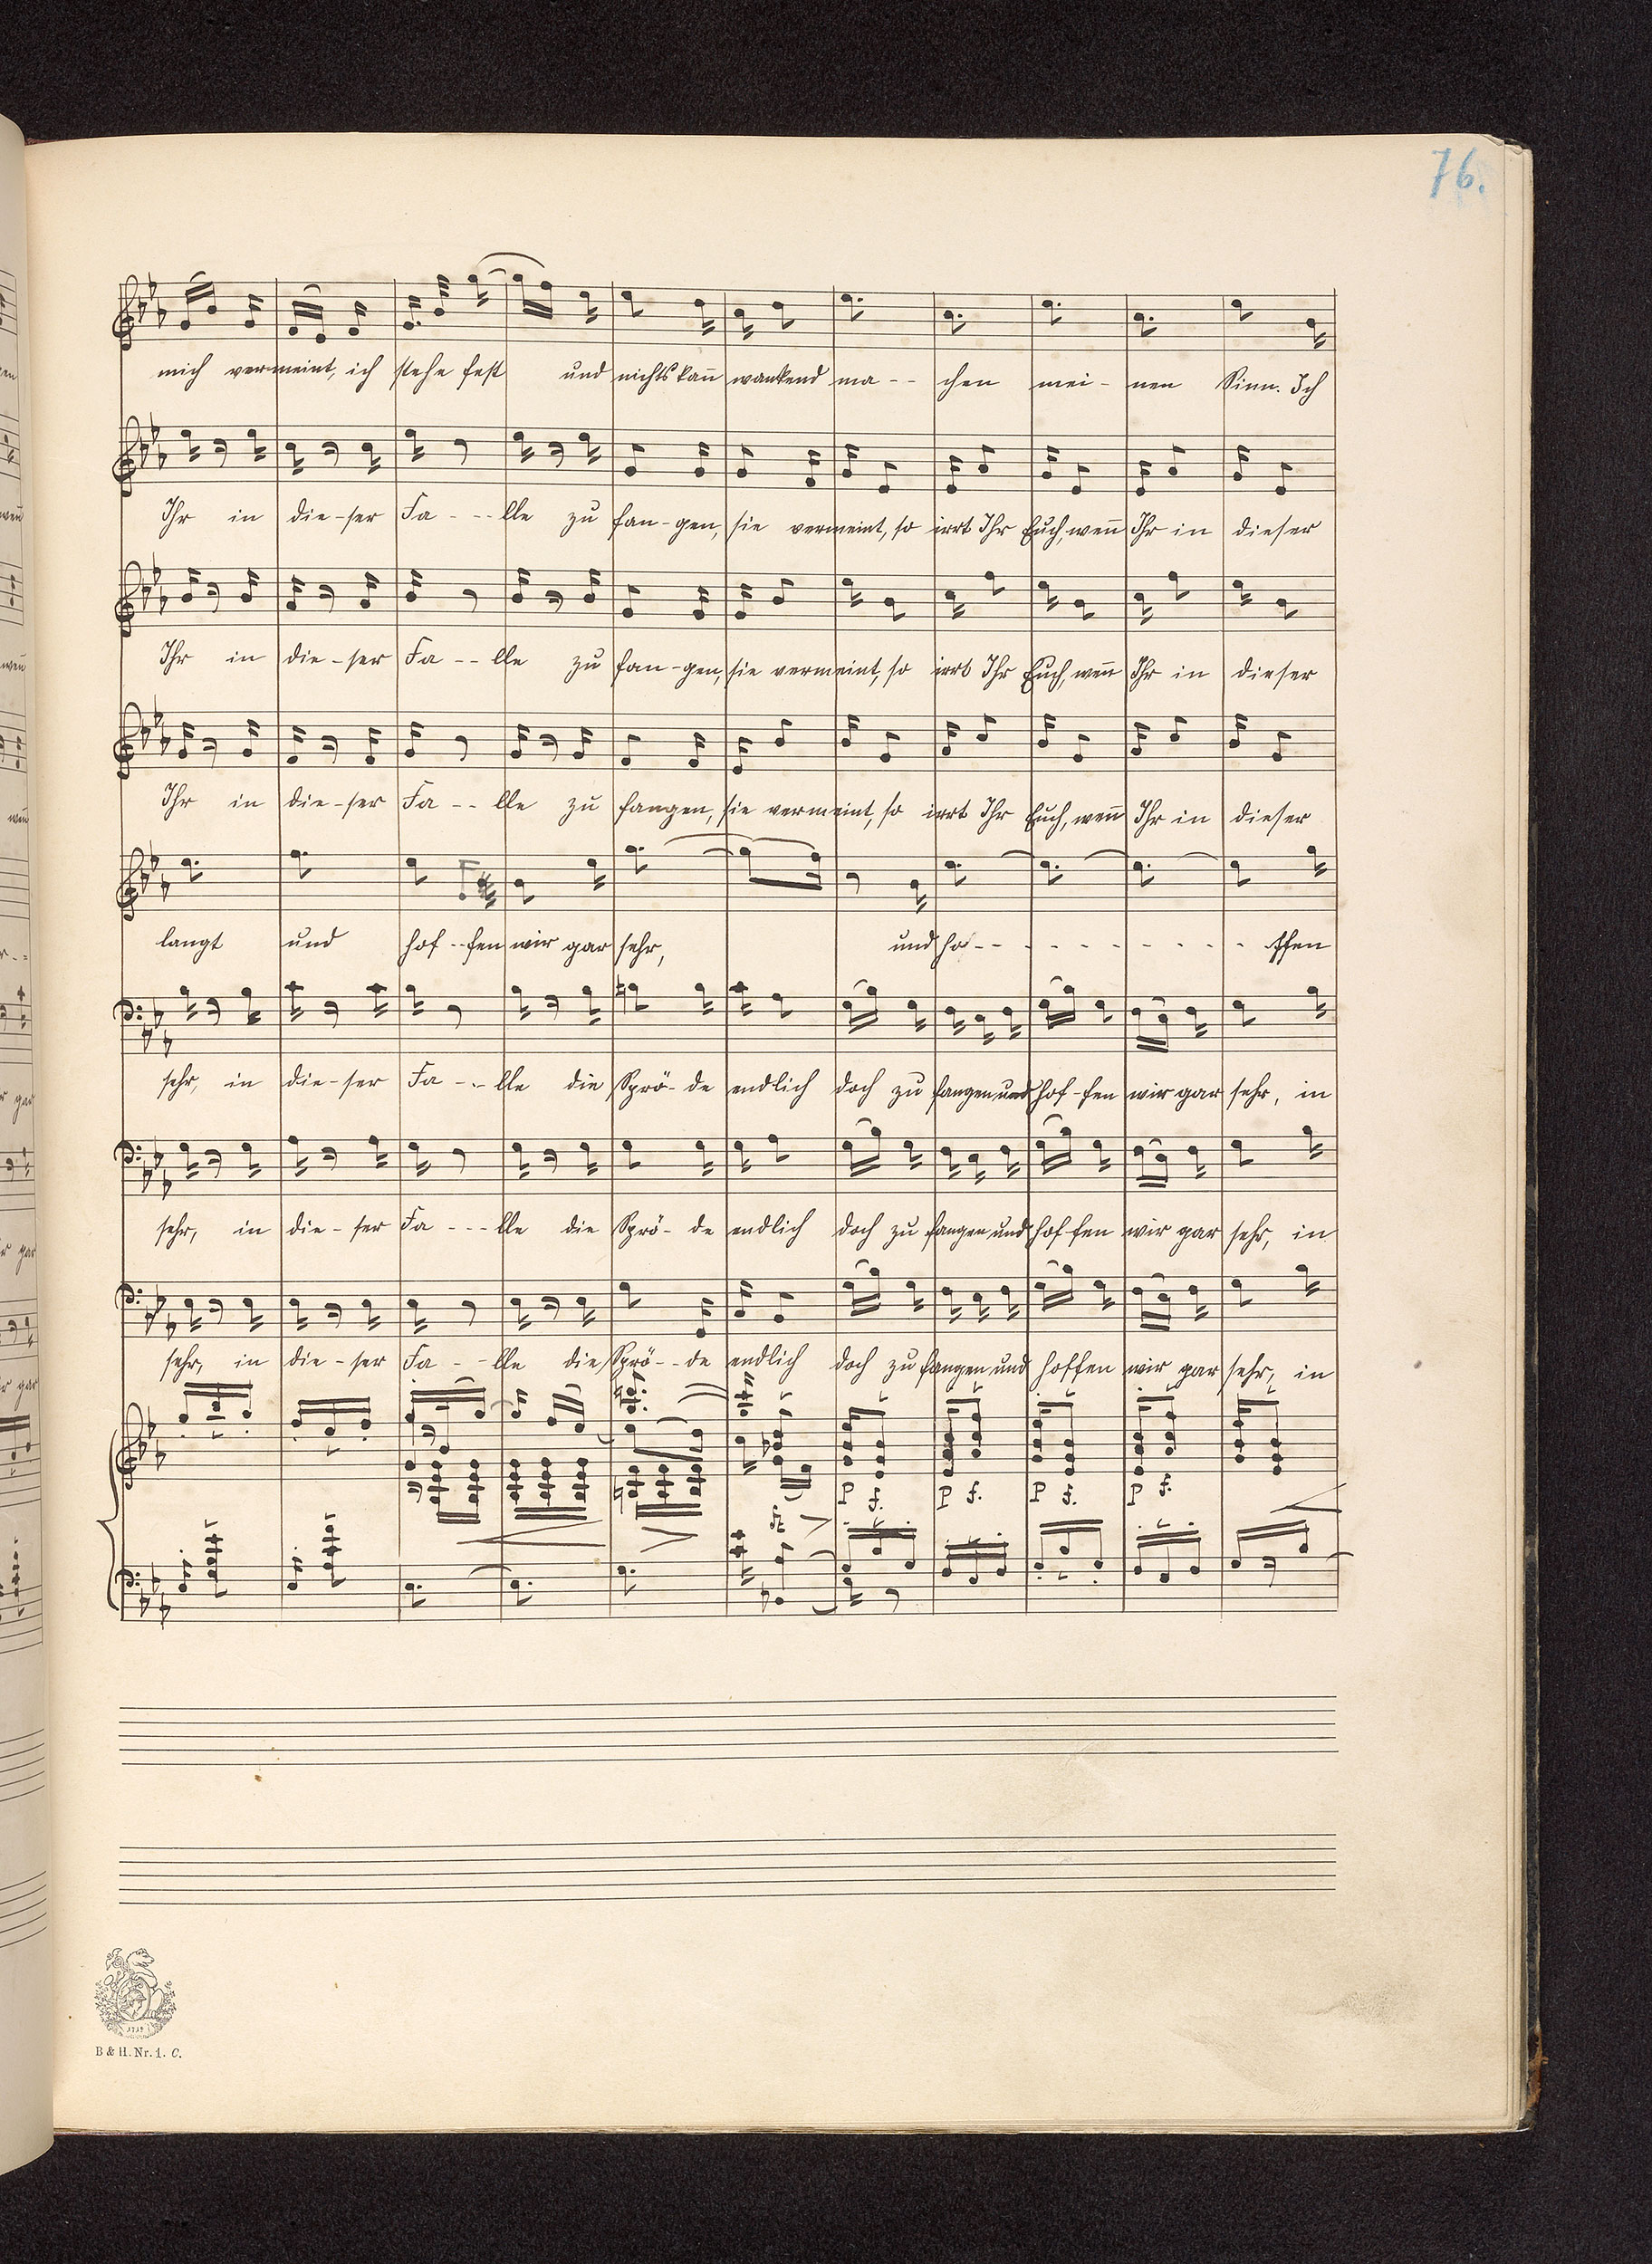 76.
mich vermeint, ich stehe fest und nichts kan̄ wankend ma-- chen mei- nen Sinn. Ich
Ihr in die-ser Fa---lle zu fan-gen, sie vermeint, so irrt Ihr Euch, wen̄ Ihr in dieser
Ihr in die-ser Fa--lle zu fan-gen, sie vermeint, so irrt Ihr Euch, wen̄ Ihr in dieser
Ihr in die-ser Fa--lle zu fangen, sie vermeint, so irrt Ihr Euch, wen̄ Ihr in dieser
langt und hof--fen wir gar sehr, und ho- - - - - - - - - - ffen
sehr, in die-ser Fa--lle die Sprö-de endlich doch zu fangen und hof-fen wir gar sehr, in
sehr, in die-ser Fa---lle die Sprö-de endlich doch zu fangen und hof-fen wir gar sehr, in
sehr, in die-ser Fa--lle die Sprö--de endlich doch zu fangen und hoffen wir gar sehr, in
p f. p f. p f. p f.
1719
B & H. Nr. 1. C.